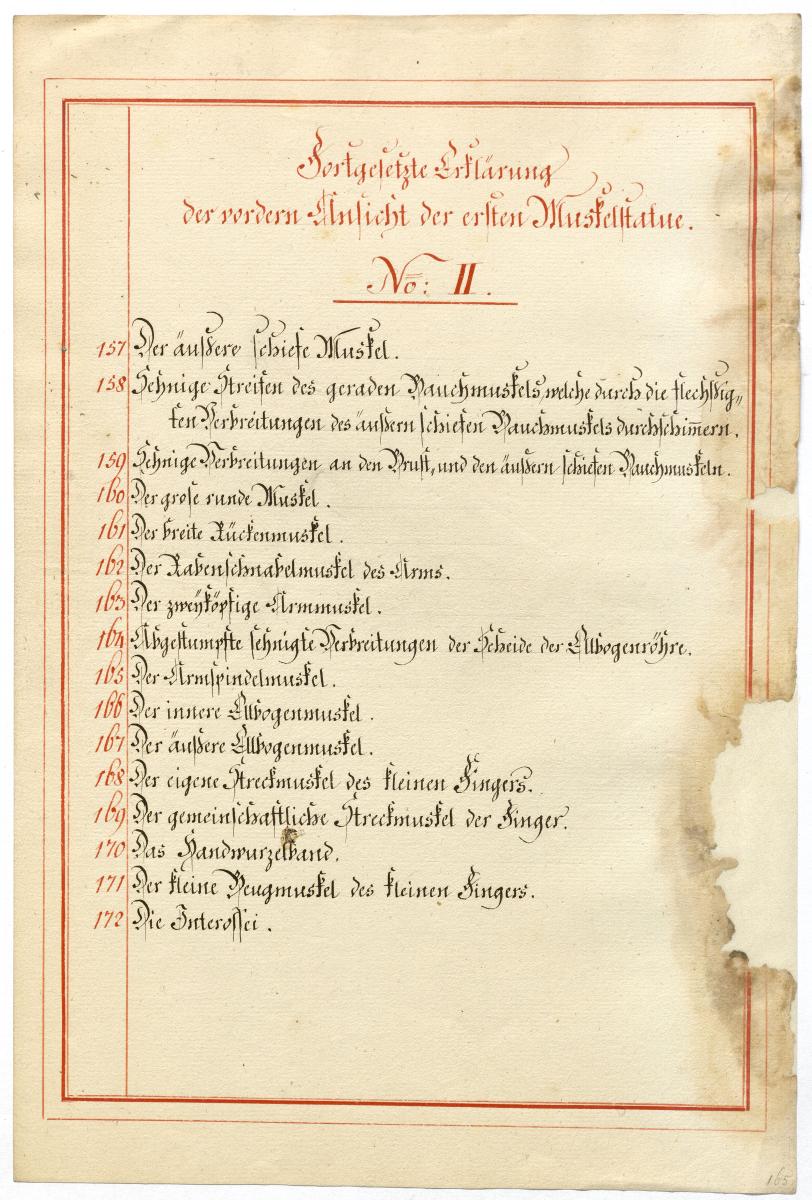 Fortgesetzte Erklärung
der vordern Ansicht der ersten Muskelstatue.
No: II.
157 Der äußere schiefe Muskel.
158 Sehnige Streifen des geraden Bauchmuskels, welche durch die flechsig„
ten Verbreitungen des äußern schiefen Bauchmuskels durchschim̅ern.
159 Sehnige Verbreitungen an den Brust, und den äußern schiefen Bauchmuskeln.
160 Der grose runde Muskel.
161 Der breite Rückenmuskel.
162 Der Rabenschnabelmuskel des Arms.
163 Der zweyköpfige Armmuskel.
164 Abgestumpfte sehnigte Verbreitungen der Scheide der Ellbogenröhre.
165 Der Armspindelmuskel.
166 Der innere Ellbogenmuskel.
167 Der äußere Ellbogenmuskel.
168 Der eigene Streckmuskel des kleinen Fingers.
169 Der gemeinschaftliche Streckmuskel der Finger.
170 Das Handwurzelband.
171 Der kleine Beugmuskel des kleinen Fingers.
172 Die Interossei.
165